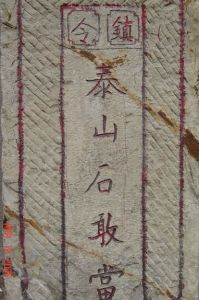 鎮令
泰山石敢當